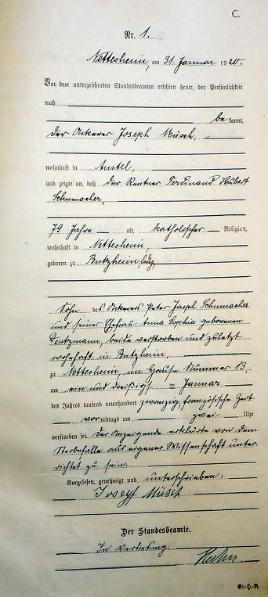 C.
Nr. 1.
Nettesheim, am 31. Januar 1920.
Vor dem unterzeichneten Standesbeamten erschien heute, der Persönlichkeit
nach
bekannt,
der Ackerer Joseph Müsch,
wohnhaft in Anstel,
und zeigte an, daß der Rentner Ferdinand Hubert
Schumacher,
79 Jahre alt, katholischer Religion,
wohnhaft in Nettesheim
geboren zu Butzheim
Sohn des Ackerers Peter Joseph Schumacher
und seiner Ehefrau Anna Sophia geborenen
beide verstorben und zuletzt
wohnhaft in Butzheim,
zu Nettesheim, im Hause Nummer 13,
am ein und dreißigsten Januar
des Jahres tausend neunhundert zwanzig, französische Zeit
vormittags um zwei Uhr
verstorben sei. Der Anzeigende erklärte von dem
Sterbefalle aus eigener Wissenschaft unter
richtet zu sein.
Vorgelesen, genehmigt und unterschrieben.
Joseph Müsch
Der Standesbeamte.
In Vertretung.